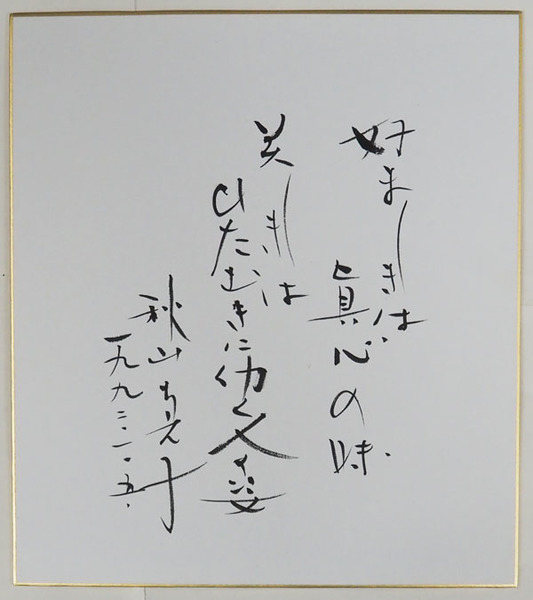 好ましきは
眞心の味
美しきは
ひたむきに仂く人姿
秋山ちえ子
一九九二・一・五